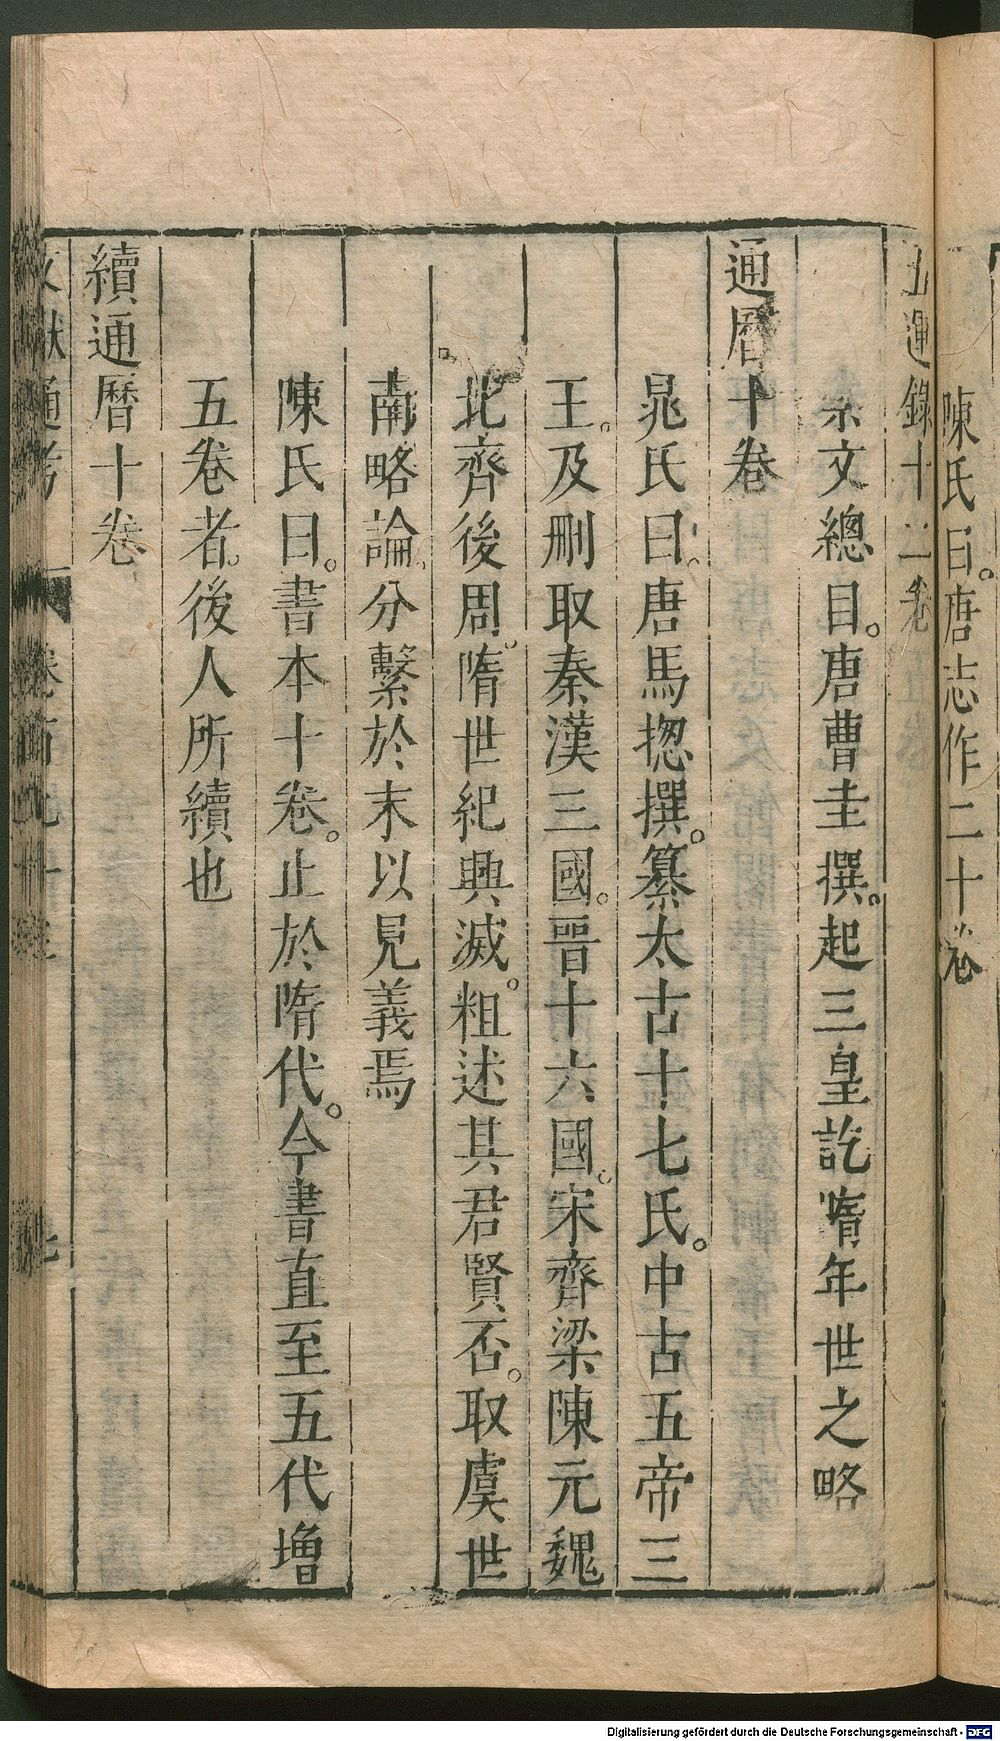 陳氏曰。唐志作二十卷
五運錄十二卷
崇文總目。唐曹圭撰。起三皇訖隋年世之略
通曆十卷
晁氏曰。唐馬揔撰。纂太古十七氏。中古五帝三
王。及刪取秦漢三國。晉十六國。宋齊梁陳元魏
北齊後周。隋世紀興滅。粗述其君賢否。取虞世
南略論。分繫於末以見義焉
陳氏曰。書本十卷。止於隋代。今書直至五代增
五卷者。後人所續也
續通曆十卷
文獻通考 卷百九十三
Digitalisierung gefördert durch die Deutsche Forschungsgemeinschaft - DFG